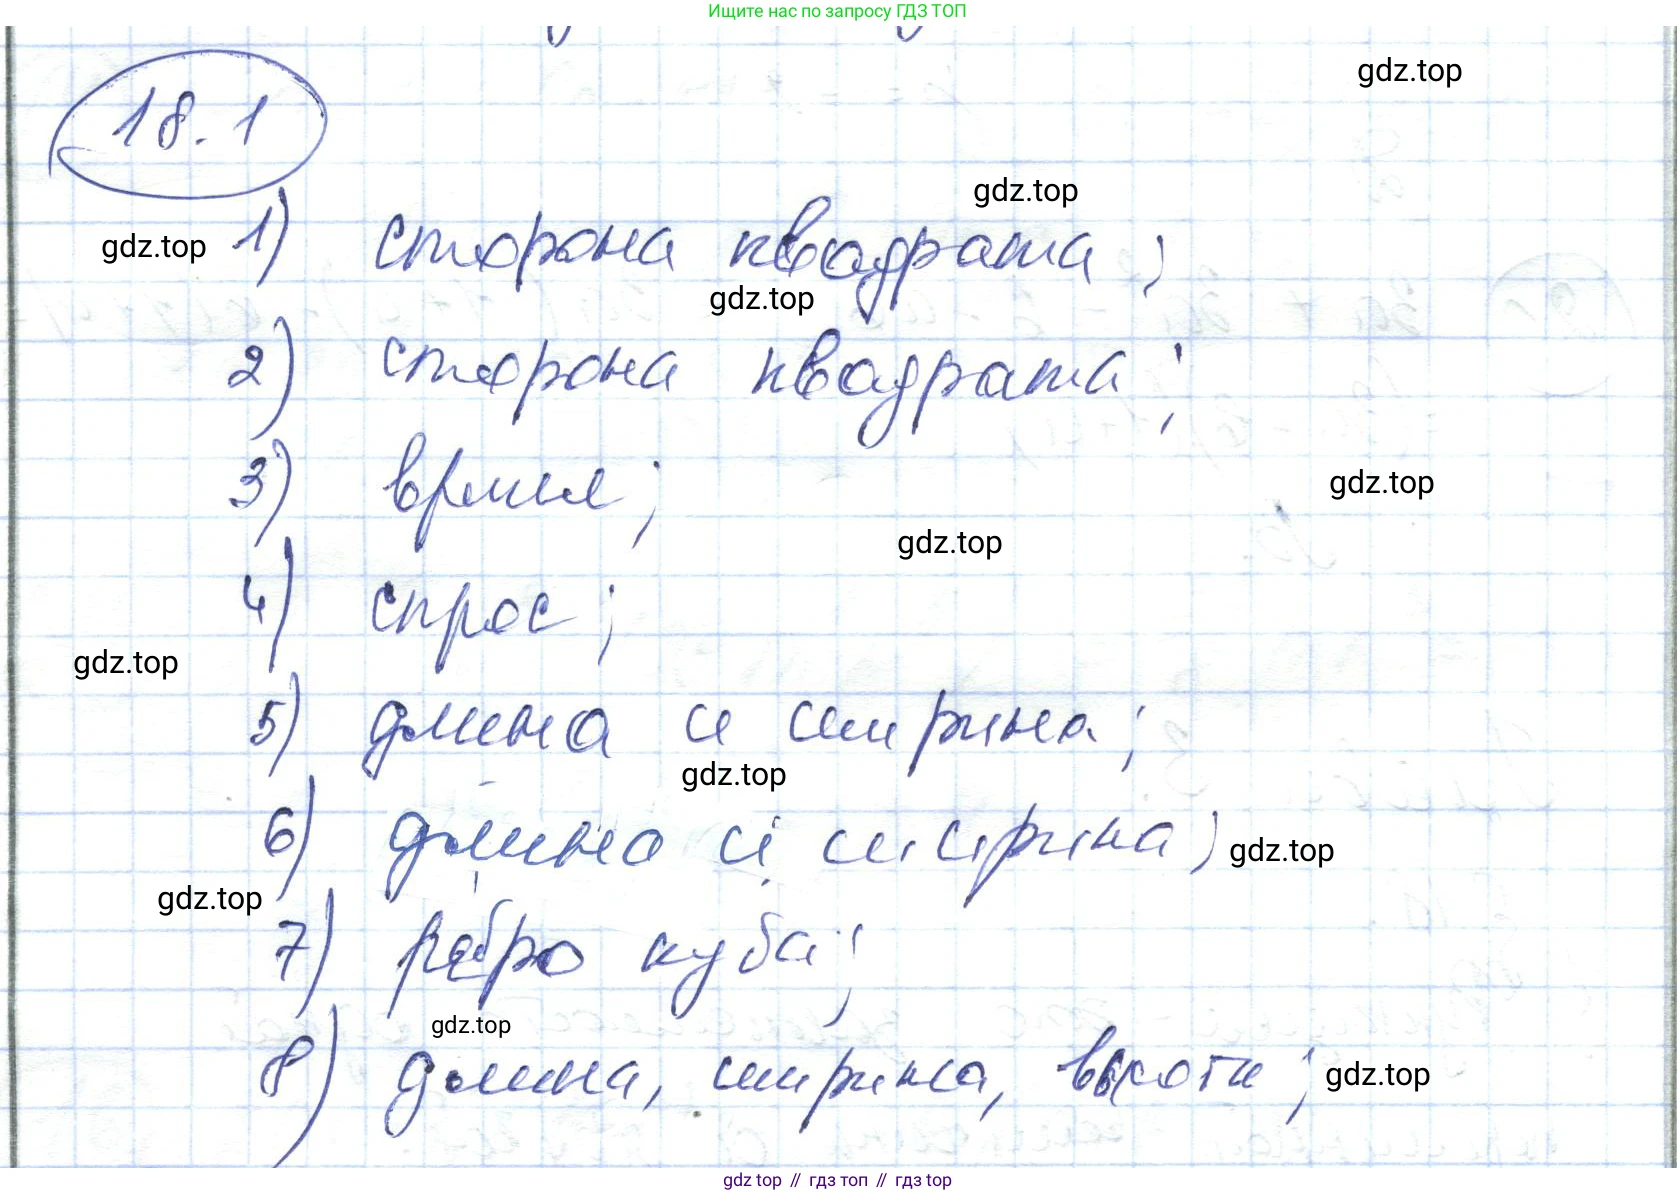 Ищите нас по запросу ГДЗ ТОП
gdz.top
18.1
gdz.top
gdz.top 1) сторона квадрата;
gdz.top
2) сторона квадрата;
3) время;
gdz.top
gdz.top
4) спрос;
gdz.top
5) длина и ширина;
gdz.top
6) длина и ширина; gdz.top
gdz.top
7) ребро куба;
gdz.top
8) длина, ширина, высота; gdz.top
gdz top // гдз топ // gdz top